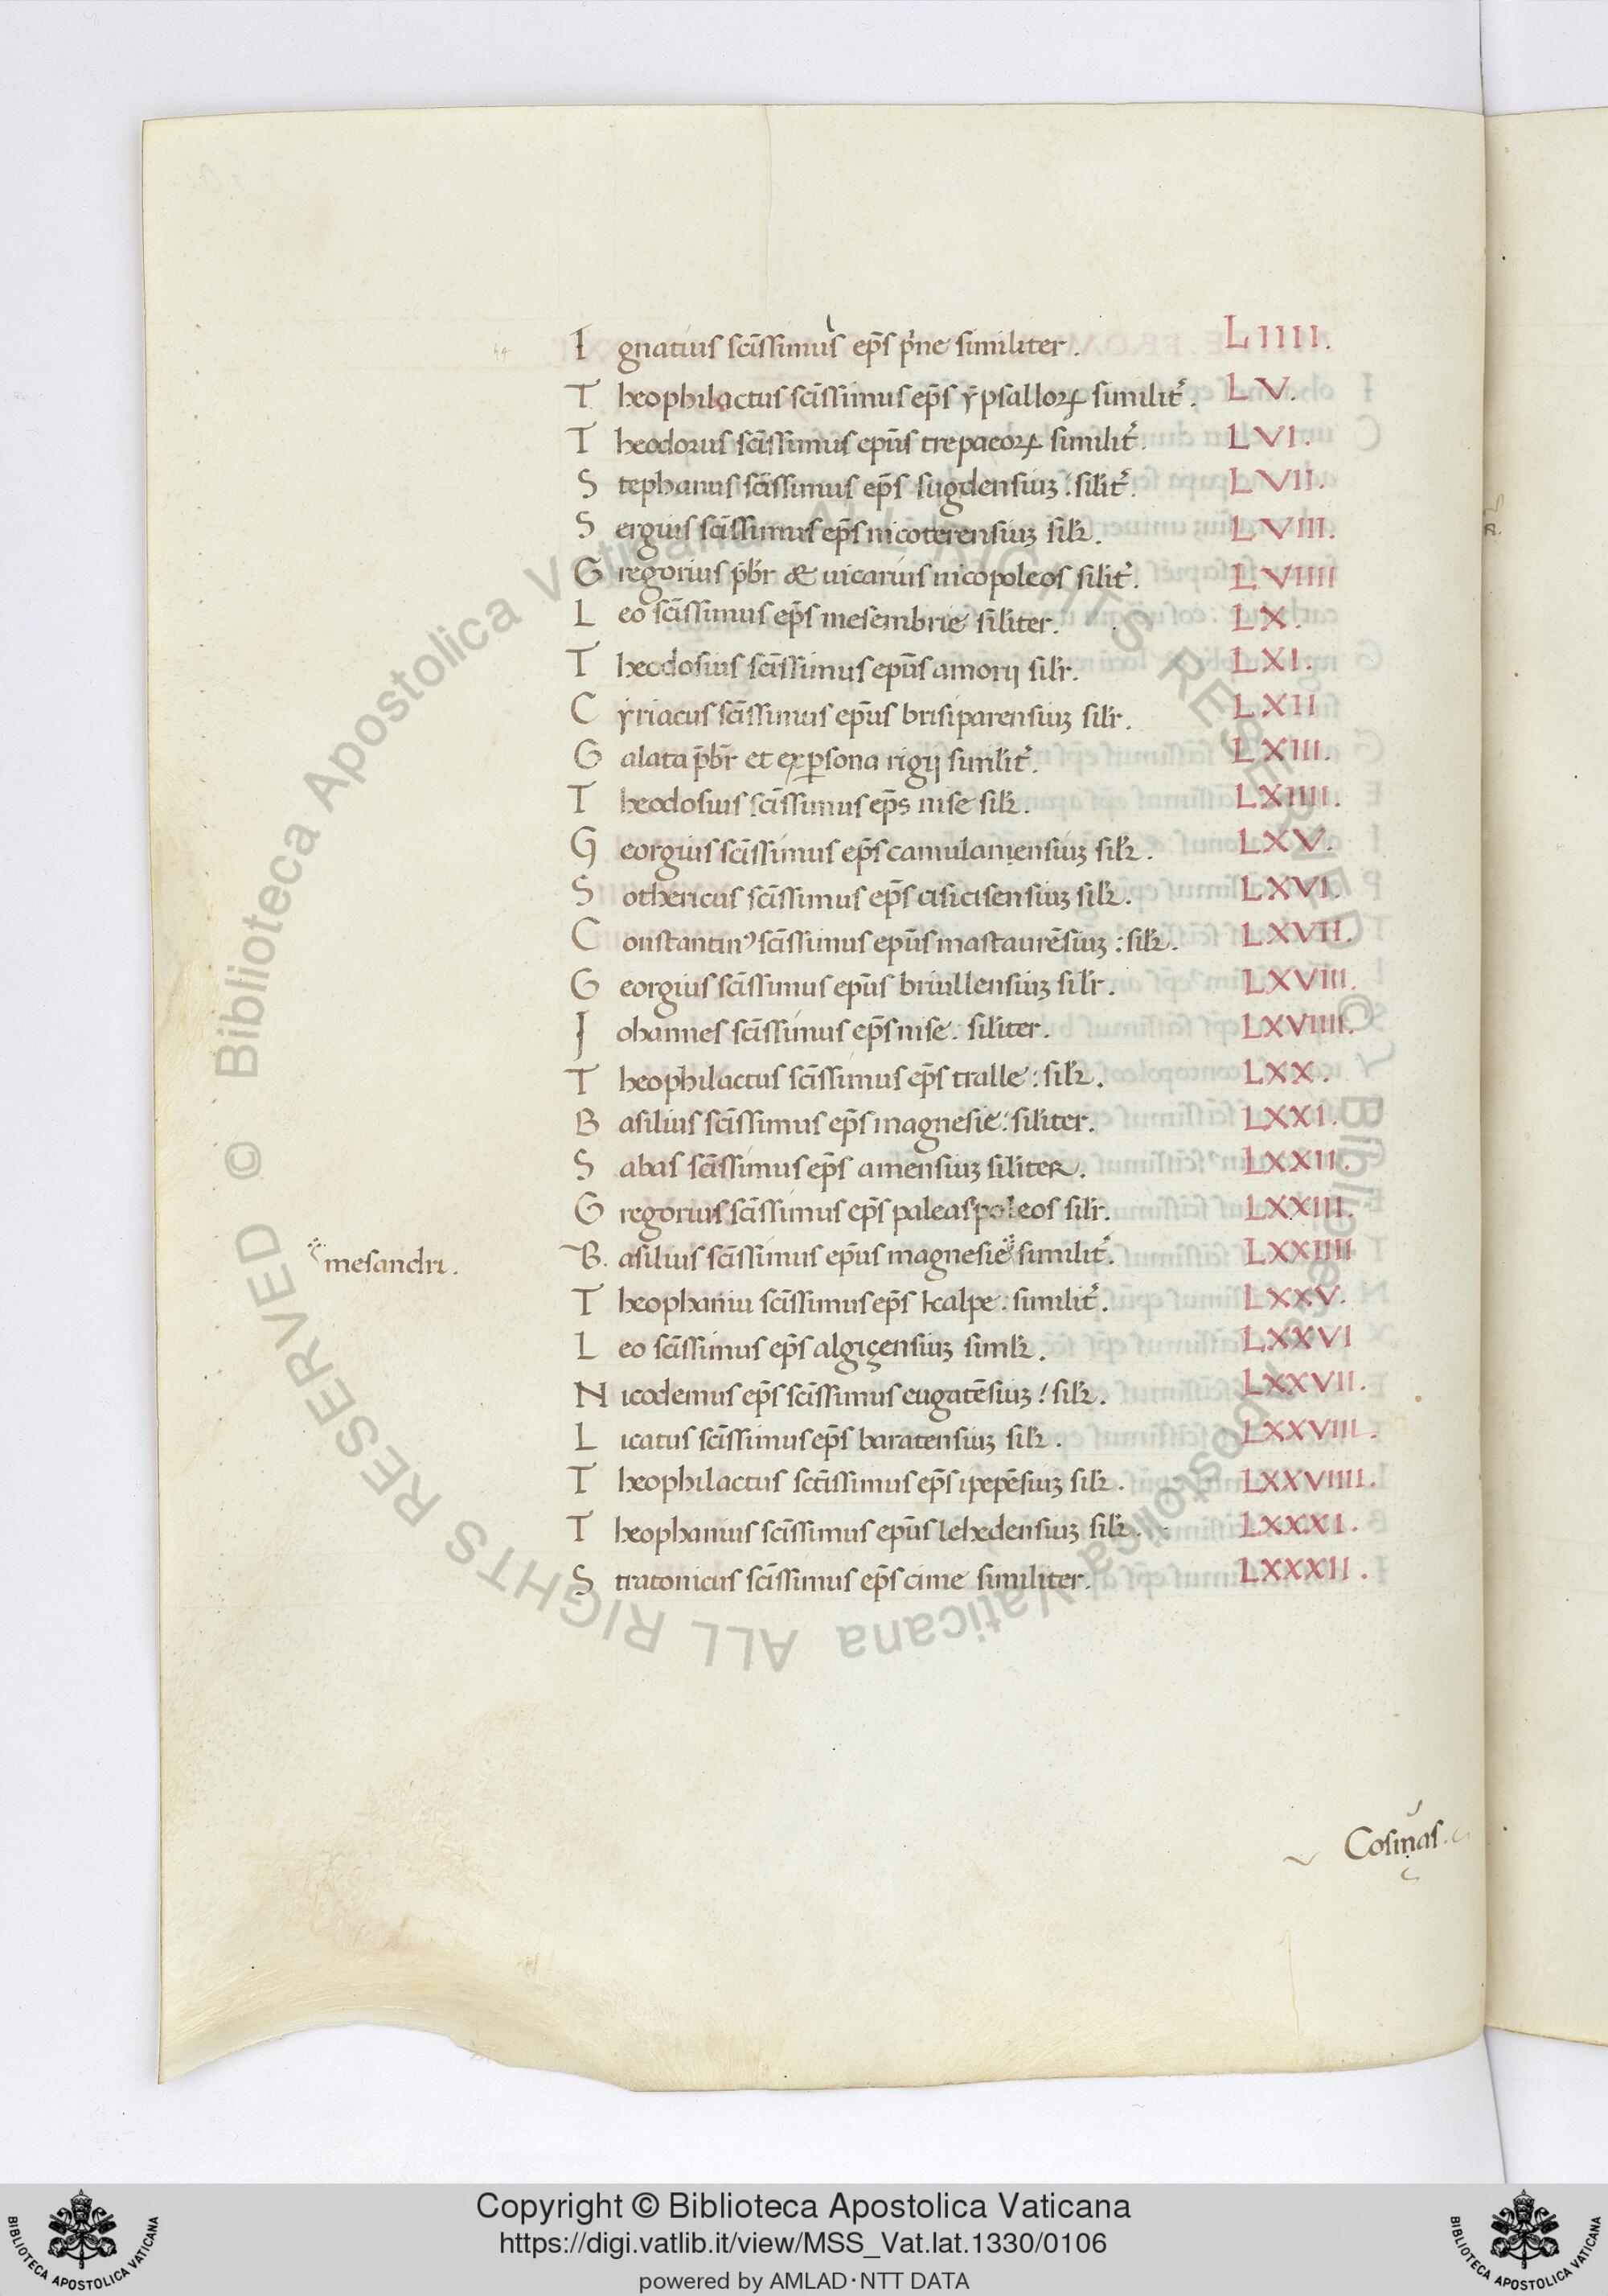 Ignatius scīssimus ep̄s p̓ne similiter. LIIII.
Theophilactus scīssimus ep̄s ypsallorꝝ similit̓. LV.
Theodorus scīssimus epūs trepaeorꝝ similit̓. LVI.
Stephanus scīssimus ep̄s sugdensiuꝫ: silit̓. LVII.
Sergius scīssimus ep̄s nicoterensiuꝫ silr̄. LVIII.
Gregorius p̄br & uicarius nicopoleos silit̓. LVIIII
Leo scīssimus ep̄s mesembrie siliter. LX.
Theodosius scīssimus epūs amorij silr. LXI.
Cyriacus scīssimus epūs brisiparensiuꝫ silr. LXII
Galata p̄br et exꝑsona rigij similit̓. LXIII.
Theodosius scīssimus ep̄s nise silr̄. LXIIII.
Georgius scīssimus ep̄s camulanensiuꝫ silr̄. LXV.
Sothericus scīssimus ep̄s cisicisensiuꝫ silr̄. LXVI.
Constantinꝰ scīssimus epūs mastaurēsiuꝫ: silr̄. LXVII.
Georgius scīssimus epūs briullensiuꝫ silr. LXVIII.
Iohannes scīssimus ep̄s nise: siliter. LXVIIII.
Theophilactus scīssimus ep̄s tralle: silr̄. LXX.
Basilius scīssimus ep̄s magnesie: siliter. LXXI.
Sabas scīssimus ep̄s amensiuꝫ siliter. LXXII.
Gregorius scīssimus ep̄s paleaspoleos silr. LXXIII.
mesandri. Basilius scīssimus epūs magnesie similit̓. LXXIIII
Theophaniu scīssimus ep̄s kalpe: similit̓. LXXV.
Leo scīssimus ep̄s algiçensiuꝫ simlr̄. LXXVI
Nicodemus ep̄s scīssimus eugatēsiuꝫ: silr̄. LXXVII.
Licatus scīssimus ep̄s baratensiuꝫ silr̄. LXXVIII.
Theophilactus sctīssimus ep̄s ipepēsiuꝫ silr̄. LXXVIIII.
Theophanius scīssimus epūs lehedensiuꝫ silr̄. LXXXI.
Stratonicus scīssimus ep̄s cime similiter. LXXXII.
Cosmas.
© Biblioteca Apostolica Vaticana ALL RIGHTS RESERVED © Biblioteca Apostolica Vaticana ALL RIGHTS RESERVED
Copyright © Biblioteca Apostolica Vaticana
https://digi.vatlib.it/view/MSS_Vat.lat.1330/0106
powered by AMLAD·NTT DATA
BIBLIOTECA APOSTOLICA VATICANA
BIBLIOTECA APOSTOLICA VATICANA